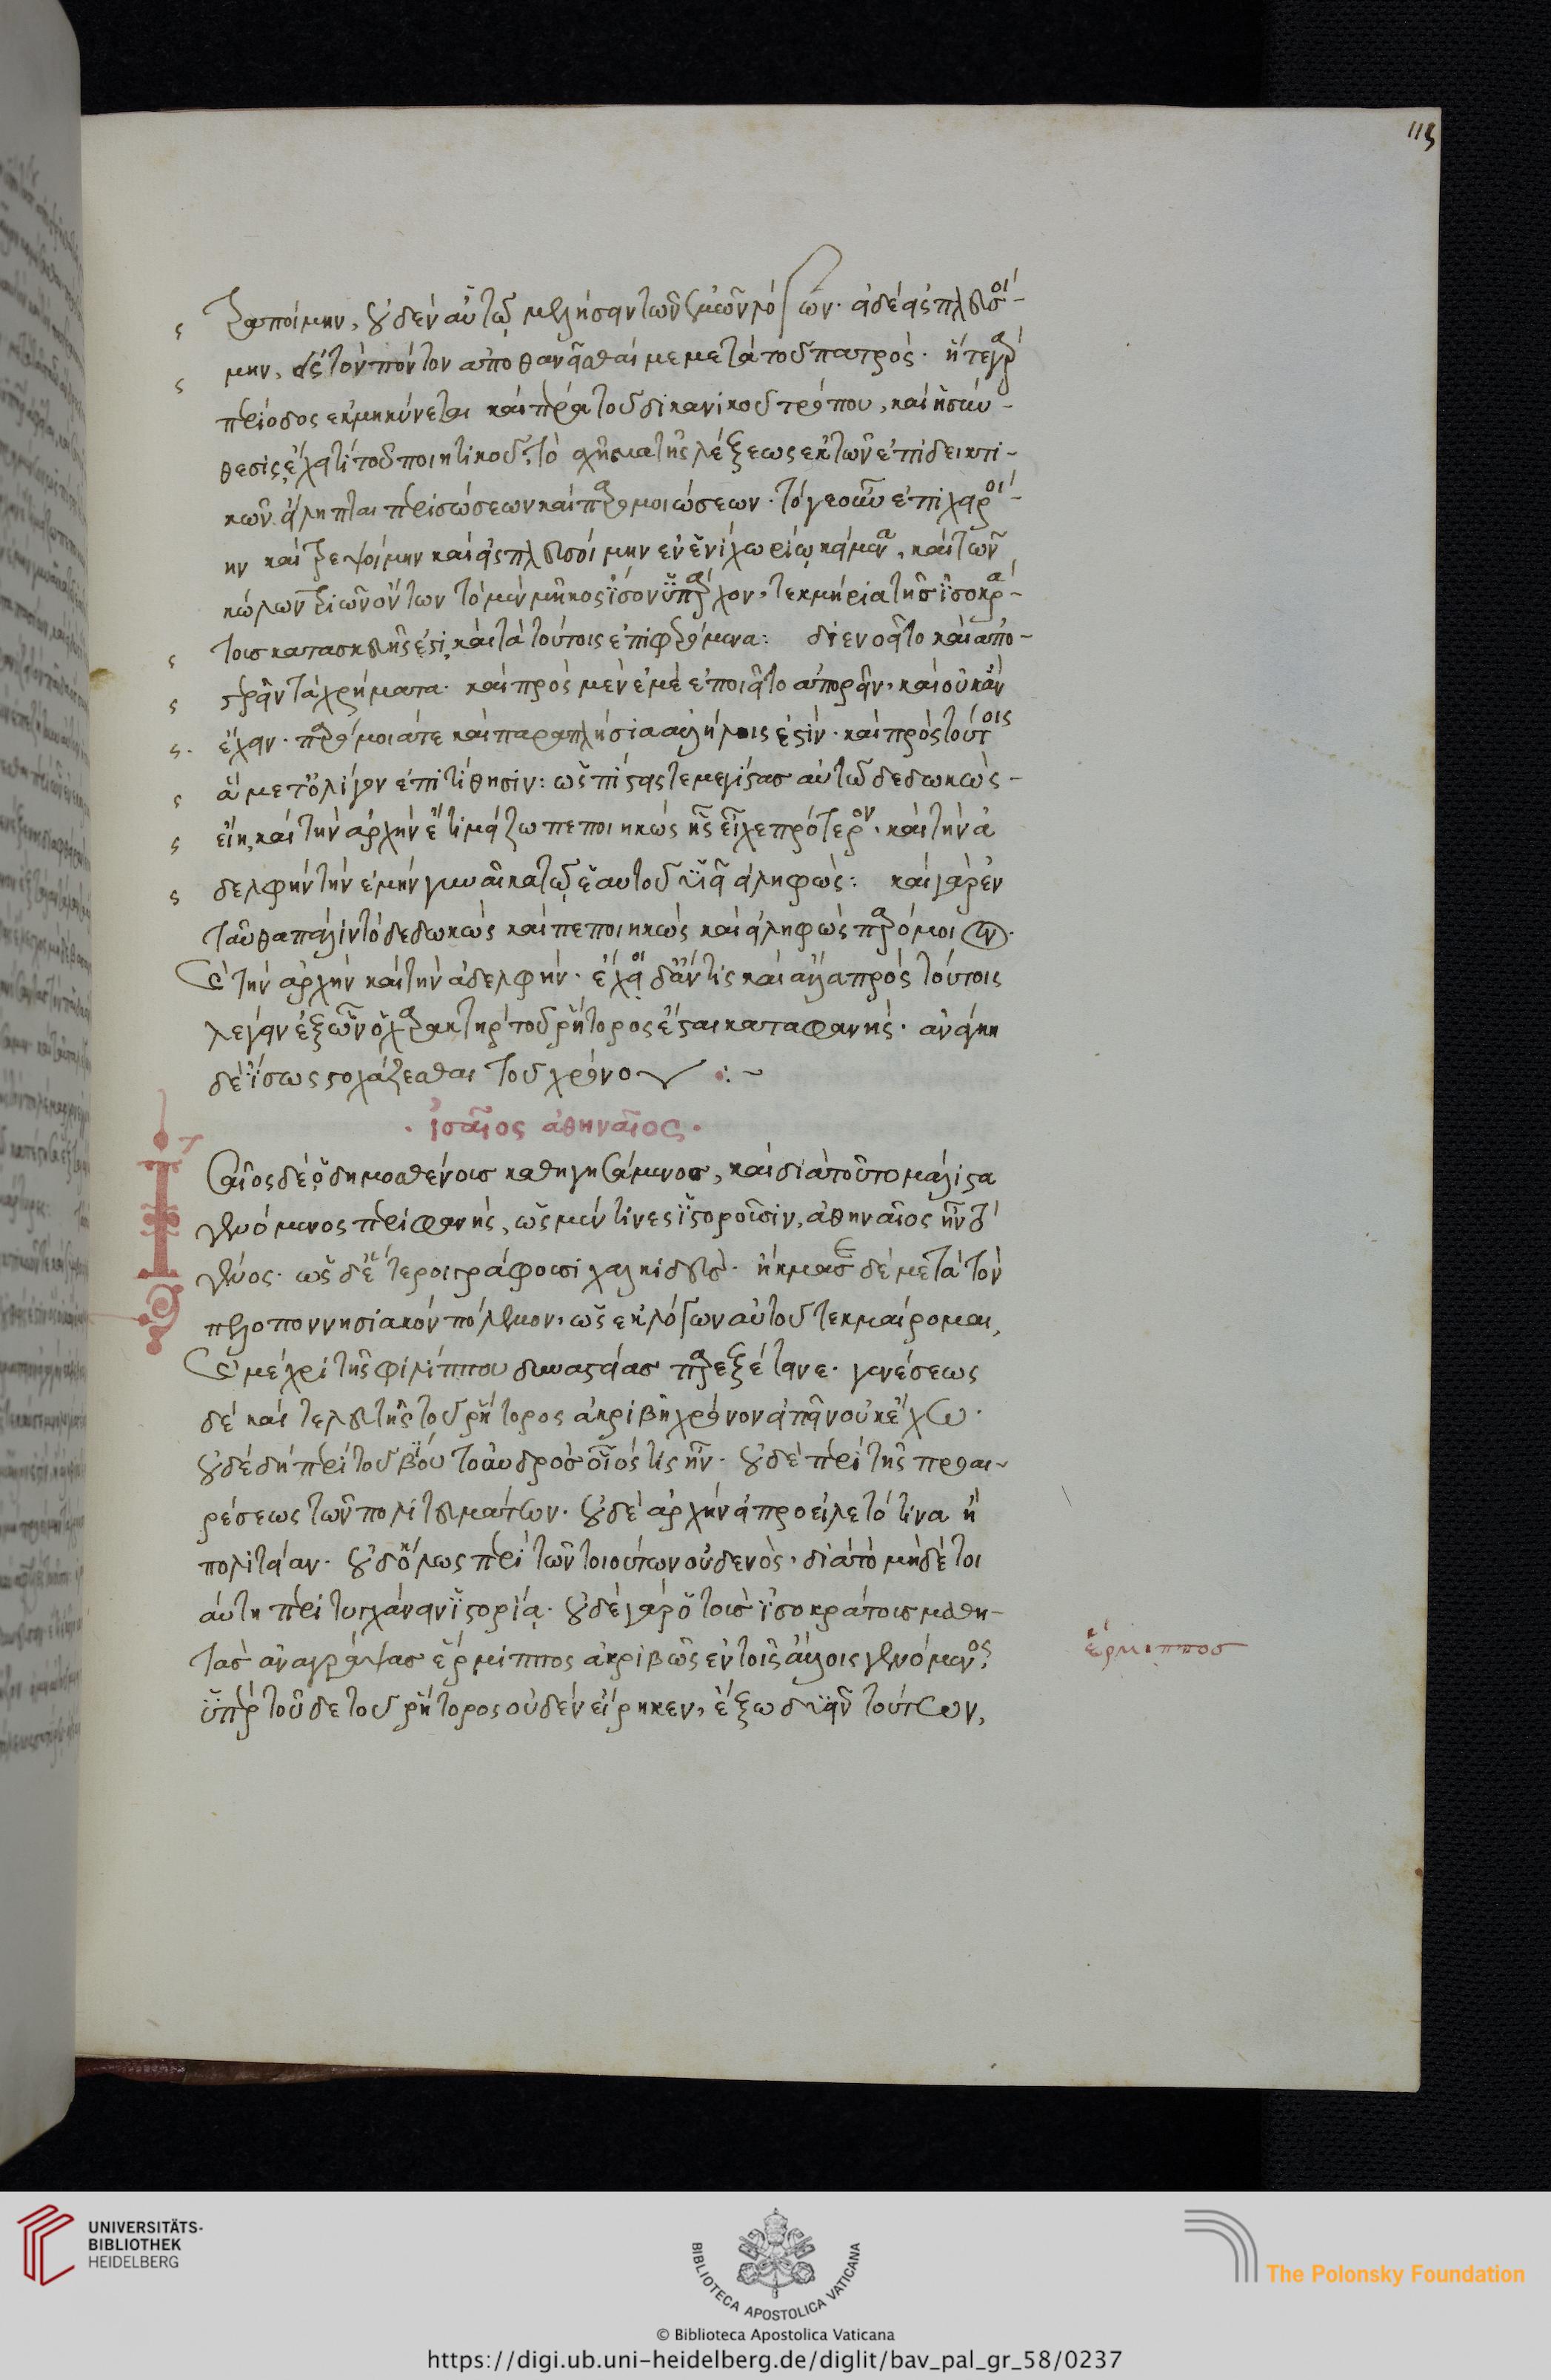 τραποίμην, οὐδὲν αὐτῶ μελήσειν τῶν ἐμῶν λόγων· εἰ δὲ εἰσπλευσοί-
μην, εἰς τὸν πόντον ἀποθανεῖσθαί με μετὰ τοῦ πατρός· ἥ τε γὰρ
περίοδος ἐκμηκύνεται καὶ πέρα τοῦ δικανικοῦ τρόπου, καὶ ἡ σύν-
θεσις ἔχει τί τοῦ ποιητικοῦ, τὸ σχῆμα τῆς λέξεως ἐκ τῶν ἐπιδεικτι-
κῶν εἴληπται περισώσεων καὶ παρομοιώσεων. τό γε οὖν ἐπιχαροί-
ην καὶ τρεψοίμην καὶ εἰσπλευσοίμην ἐν ἑνὶ χωρίῳ κείμενα, καὶ τῶν
κώλων τριῶν ὄντων τὸ μὲν μῆκος ἴσον ὑπάρχον, τεκμήρια τῆς ἰσοκρά-
τους κατασκευῆς ἐστί, καὶ τὰ τούτοις ἐπιφερόμενα: διενοεῖτο καὶ ἀπο-
στερεῖν τὰ χρήματα· καὶ πρὸς μὲν ἐμὲ ἐποιεῖτο ἀπορεῖν, καὶ οὐκ ἂν
ἔχειν· παρόμοιά τε καὶ παραπλήσια ἀλλήλοις ἐστίν· καὶ πρὸς τούτοις
ἃ μετ' ὀλίγον ἐπιτίθησιν: ὡς πίστεις τε μεγίστας αὐτῷ δεδωκὼς
εἴη, καὶ τὴν ἀρχὴν ἔτι μείζω πεποιηκὼς ἧς εἶχε πρότερον, καὶ τὴν ἀ
δελφὴν τὴν ἐμὴν γυναῖκα τῷ ἑαυτοῦ υἱεῖ εἰληφώς: καὶ γὰρ ἐν
ταῦθα πάλιν τὸ δεδωκὼς καὶ πεποιηκὼς καὶ εἰληφὼς παρόμοι
καὶ τὴν ἀρχὴν καὶ τὴν ἀδελφήν· ἔχοι δ' ἄν τις καὶ ἄλλα πρὸς τούτοις
λέγειν ἐξ ὧν ὁ χαρακτὴρ τοῦ ῥήτορος ἔσται καταφανής· ἀνάγκη
δὲ ἴσως στοχάζεσθαι τοῦ χρόνου :~
· ἰσαῖος ἀθηναῖος ·
Ἰσαῖος δὲ ὁ δημοσθένους καθηγησάμενος, καὶ διὰ τοῦτο μάλιστα
γενόμενος περιφανής, ὡς μέν τινες ἱστοροῦσιν, ἀθηναῖος ἦν τὸ
γένος· ὡς δὲ ἕτεροι γράφουσι χαλκιδεύς· ἤκμασε δὲ μετὰ τὸν
πελοποννησιακὸν πόλεμον, ὡς ἐκ λόγων αὐτοῦ τεκμαίρομαι,
καὶ μέχρι τῆς φιλίππου δυναστείας παρεξέτεινε· γενέσεως
δὲ καὶ τελευτῆς τοῦ ῥήτορος ἀκριβῆ χρόνον εἰπεῖν οὐκ ἔχω·
οὐδὲ δὴ περὶ τοῦ βίου τἀνδρὸς οἷός τις ἦν· οὐδὲ περὶ τῆς προαι-
ρέσεως τῶν πολιτευμάτων· οὐδὲ ἀρχὴν εἰ προείλετό τινα ἢ
πολιτείαν· οὐδ' ὅλως περὶ τῶν τοιούτων οὐδενὸς, διὰ τὸ μηδὲ τοι
αύτῃ περιτυγχάνειν ἱστορίᾳ· οὐδὲ γὰρ ὁ τοὺς ἰσοκράτους μαθη-
τὰς ἀναγράψας ἕρμιππος ἀκριβῶς ἐν τοῖς ἄλλοις γενόμενος
ὑπὲρ τοῦδε τοῦ ῥήτορος οὐδὲν εἴρηκεν, ἔξω δυεῖν τούτων,
ἕρμιππος
UNIVERSITÄTS-
BIBLIOTHEK
HEIDELBERG
BIBLIOTECA APOSTOLICA VATICANA
The Polonsky Foundation
© Biblioteca Apostolica Vaticana
https://digi.ub.uni-heidelberg.de/diglit/bav_pal_gr_58/0237